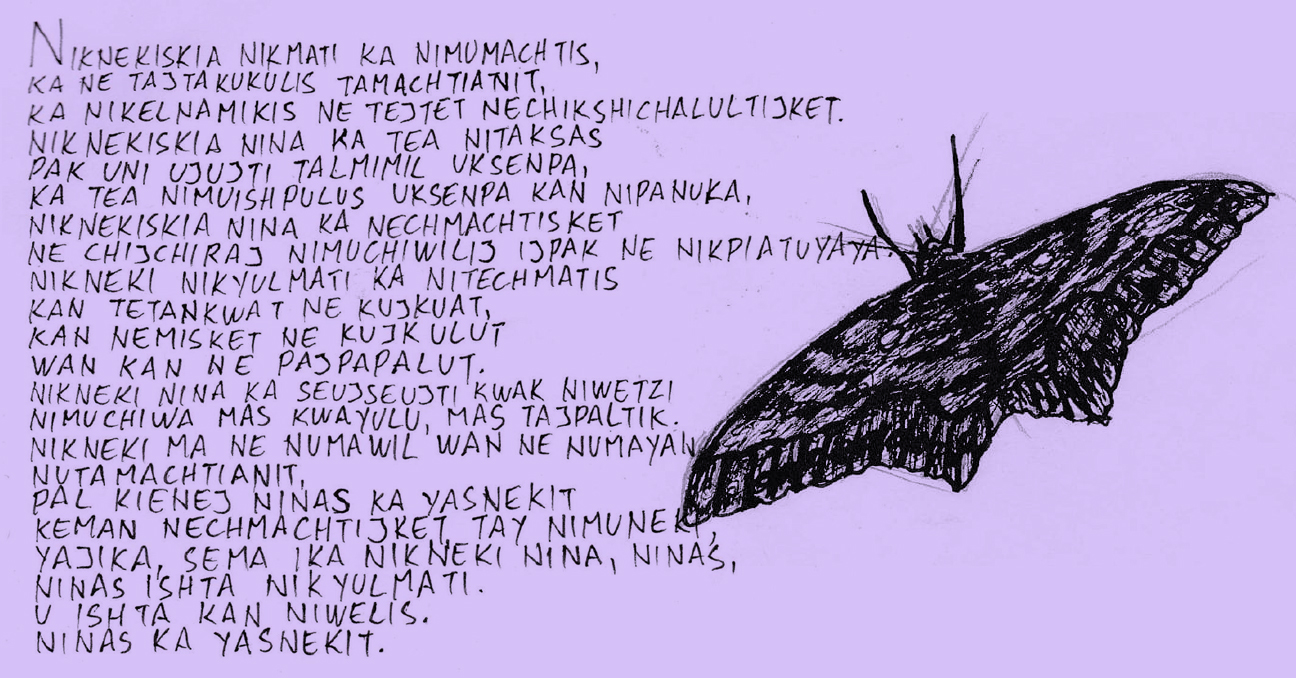 NIKNEKISKIA NIKMATI KA NIMUMACHTIS,
KA NE TAJTAKUKULIS TAMACHTIANIT,
KA NIKELNAMIKIS NE TEJTET NECHIKSHICHALULTIJKET.
NIKNEKISKIA NINA KA TEA NITAKSAS
PAK UNI UJUJTI TALMIMIL UKSENPA,
KA TEA NIMUISHPULUS UKSENPA KAN NIPANUKA,
NIKNEKISKIA NINA KA NECHMACHTISKET
NE CHIJCHIRAJ NIMUCHIWILIJ IJPAK NE NIKPIATUYAYA.
NIKNEKI NIKYULMATI KA NITECHMATIS
KAN TETANKWAT NE KUJKUAT,
KAN NEMISKET NE KUJKULUT
WAN KAN NE PAJPAPALUT.
NIKNEKI NINA KA SEUJSEUJTI KWAK NIWETZI
NIMUCHIWA MAS KWAYULU, MAS TAJPALTIK.
NIKNEKI MA NE NUMAWIL WAN NE NUMAYAN
NUTAMACHTIANIT,
PAL KIENEJ NINAS KA YASNEKIT
KEMAN NECHMACHTIJKET TAY NIMUNEKI,
YAJIKA, SEMA IKA NIKNEKI NINA, NINAS,
NINAS ISHTA NIKYULMATI.
U ISHTA KAN NIWELIS.
NINAS KA YASNEKIT.